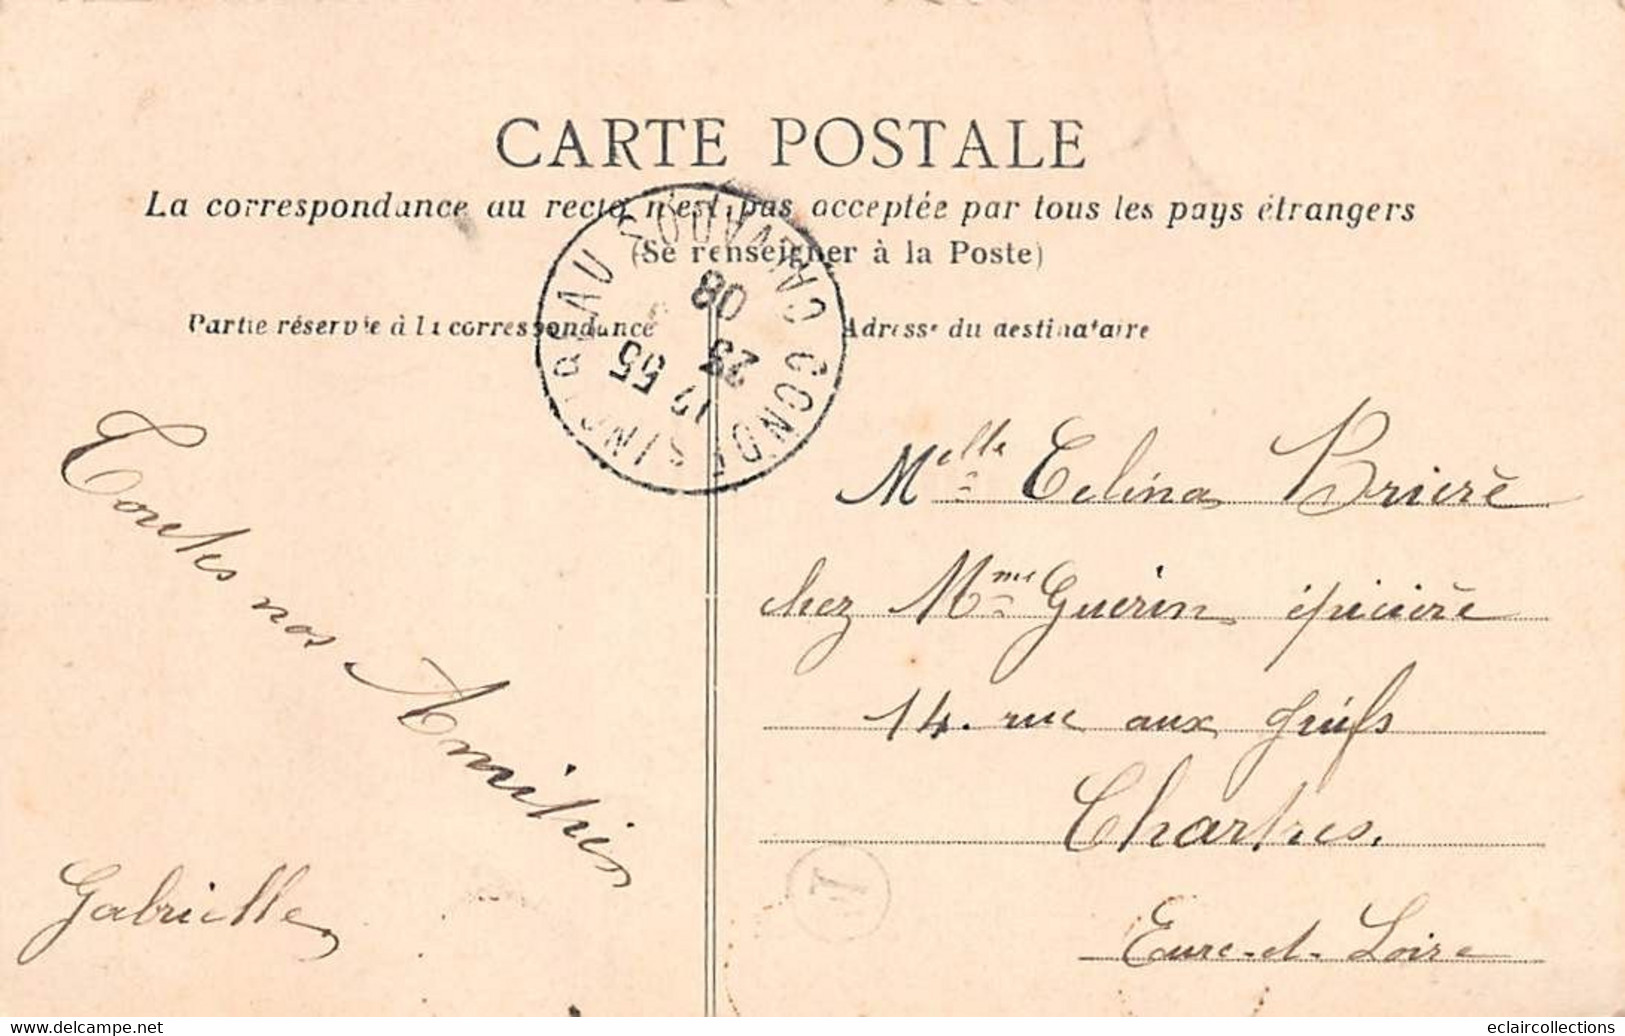 CARTE POSTALE
La correspondance au recto n'est pas acceptée par tous les pays étrangers
(Se renseigner à la Poste)
Partie réservée à la correspondance
Adresse du destinataire
CONDE S NOIREAU CALVADOS
12 55
23
08
Toutes nos Amitiés
Gabrielle
Melle Celina Brière
chez Mme Guérin épicière
14. rue aux
Chartres.
Eure-et-Loire
J
www.delcampe.net
eclaircollections